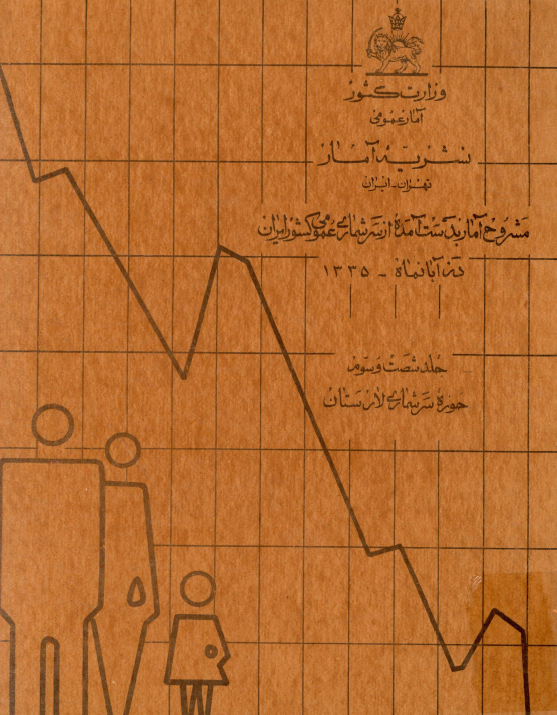 وزارت کشور
آمار عمومی
نشریهٔ آمار
تهران - ایران
مشروح آمار بدست آمده از سرشماری عمومی کشور ایران
در آبانماه - ۱۳۳۵
جلد شصت و سوم
حوزه سرشماری لارستان